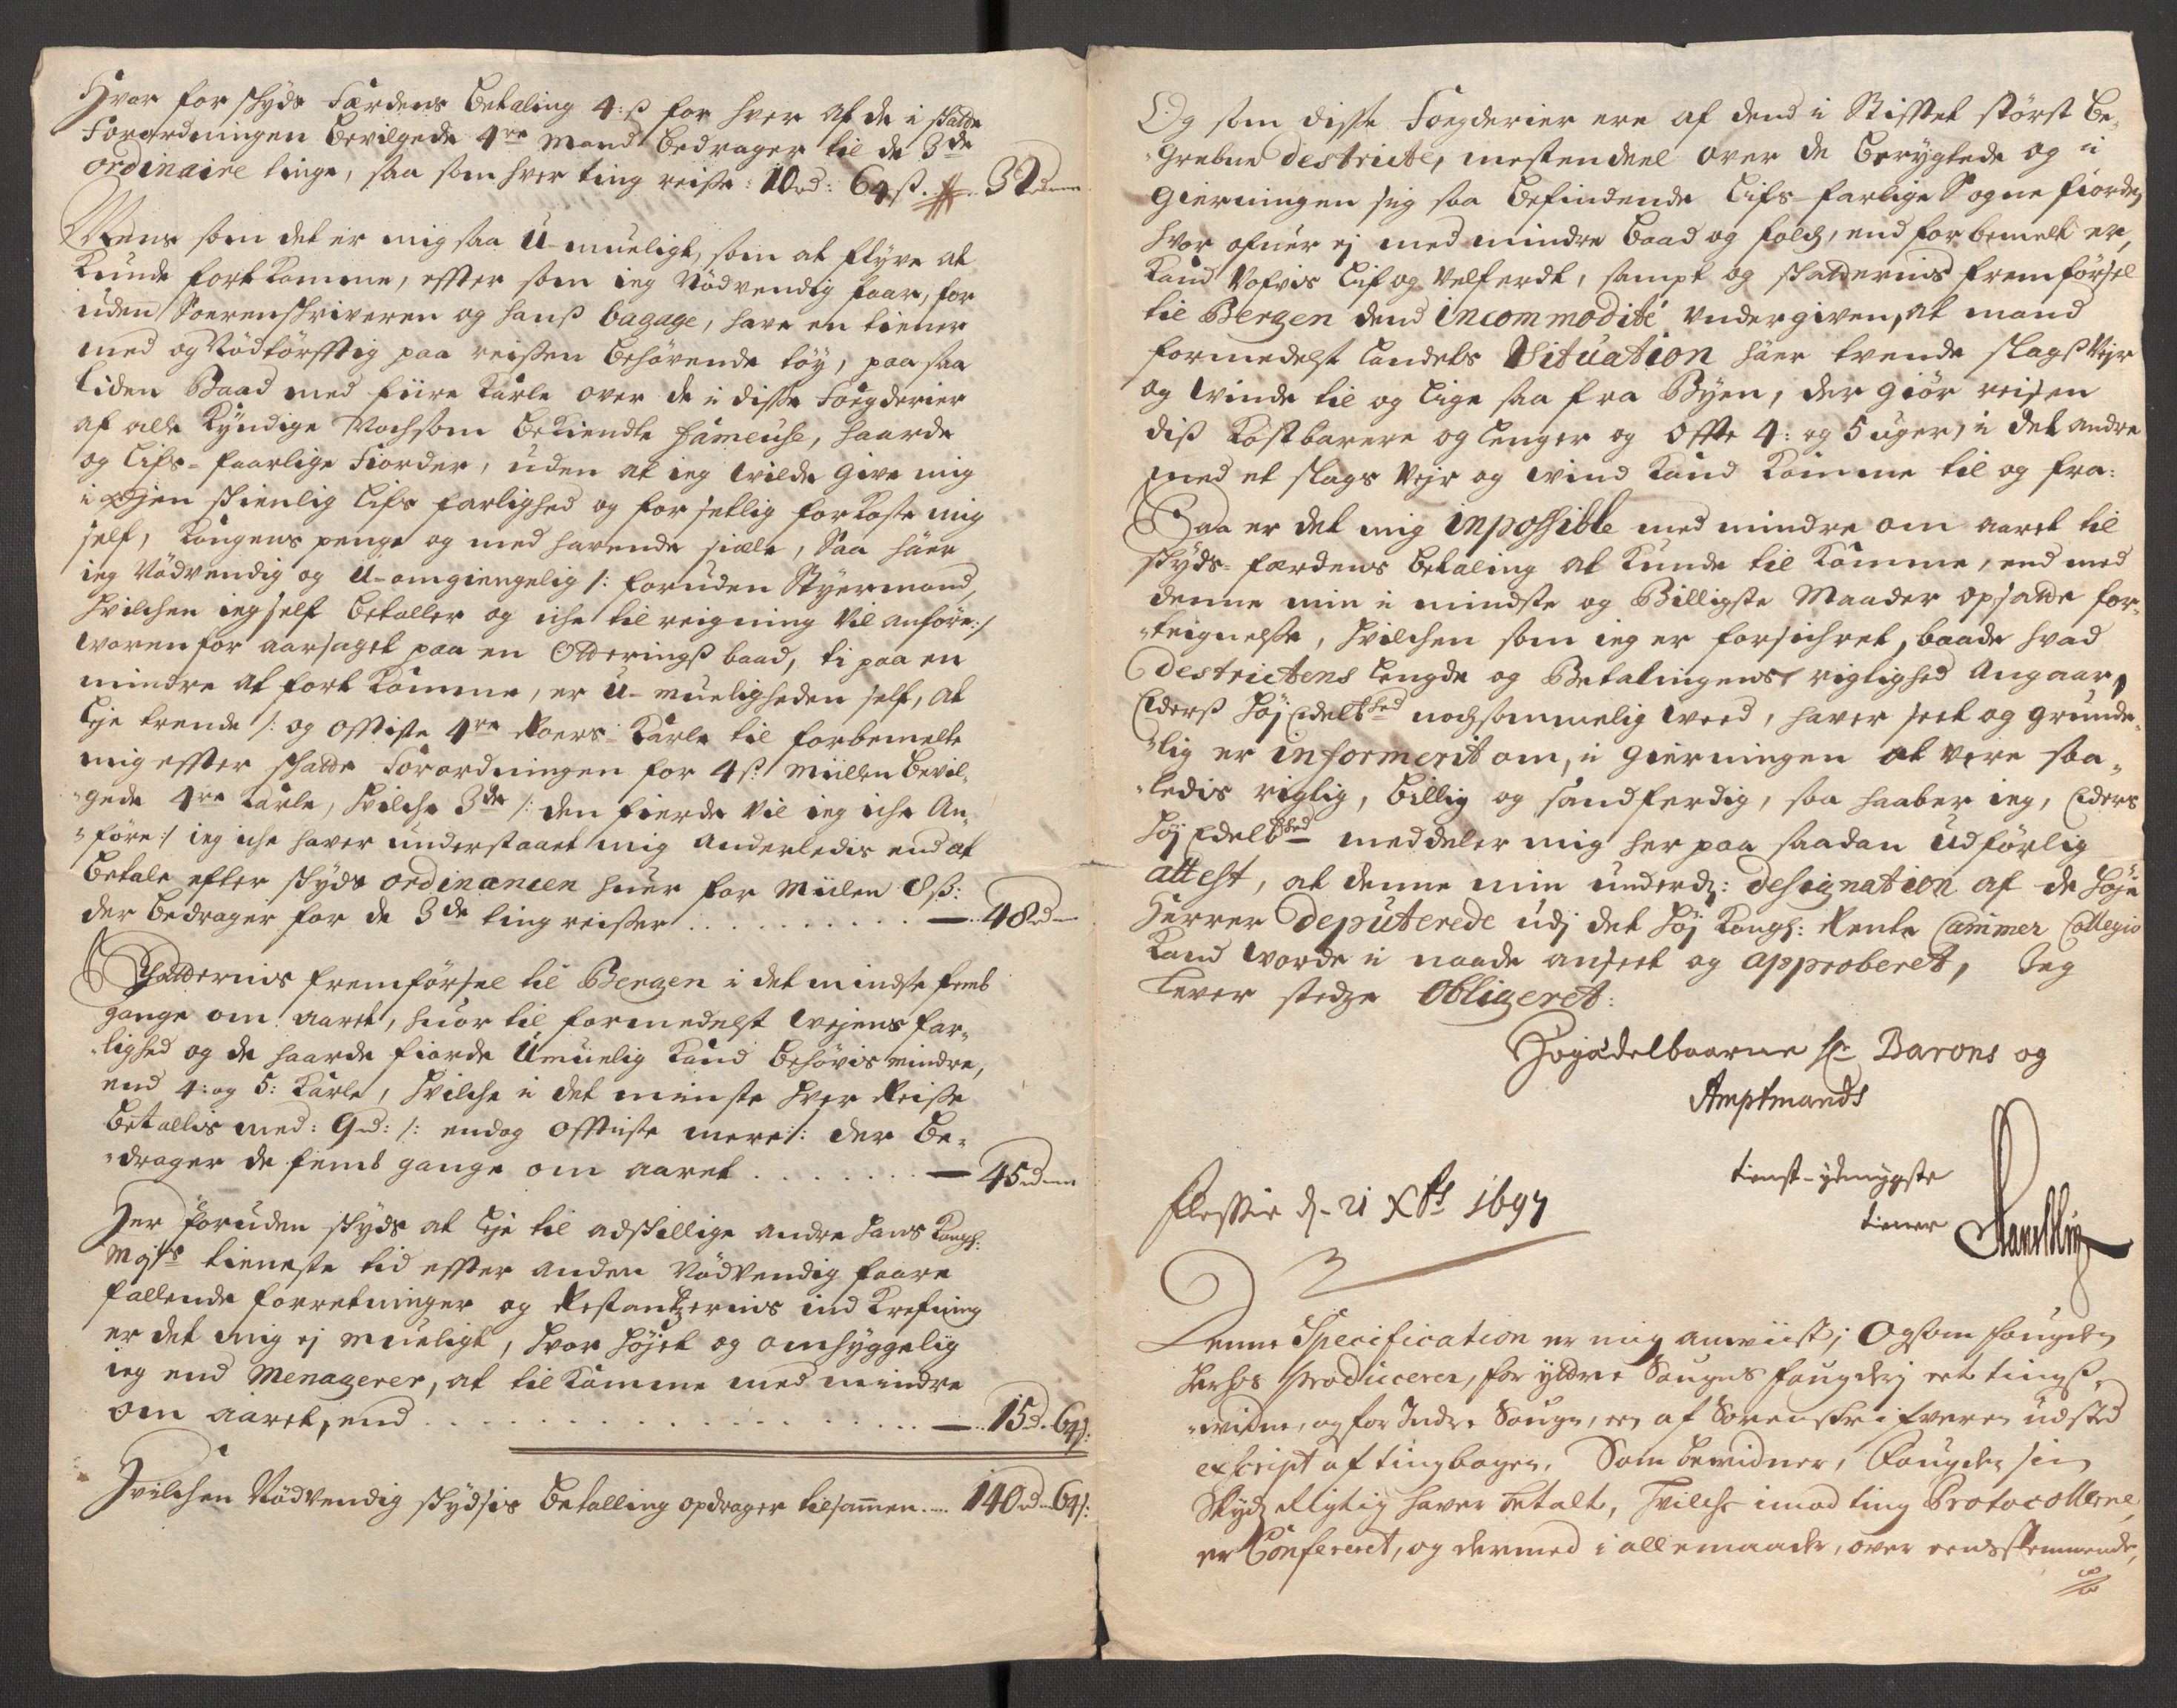 Hvor for skyds færdens betaling 4: ß for hver af de i skatte
Forordningen bevilgede 4re mand bedrager til de 3de
ordinaire tinge, saa som hver ting reisse: 10 rd: 64 ß. 32 rd
Mens som det er mig saa U-mueligt, som at flyve at
kunde fortkomme, effter som ieg Nödvendig faar, for
uden Sorenskriveren og hanß bagage, have en tiener
med og Nödtörfftig paa reissen behövende töy, paa saa
liden Baad med fiire karle over de i disse Fogderier
af alle kyndige Nochsom bekiendte fameuse, haarde
og Lifs-faarlige Fiorder, uden at ieg wilde give mig
i øjensskienlig Lifs farlighed og forsetlig forkaste mig
self, kongens penge og med havende siæle, Saa häer
ieg Nödvendig og U-omgiengelig /: foruden Styrmand,
hvilchen ieg self betaller og iche til reigning vil anföre:/
woren foraarsaget paa en Otteringß baad, ti paa en
mindre at fort komme, er U-mueligheden self, at
Leje trende /: og offtiste 4re Roers-karle til forbemelte
mig effter skatte Forordningen for 4 ß: Miilen bevil-
gede 4re karle, hvilche 3de /: den fierde vil ieg iche An-
före :/ ieg iche haver understaaet mig anderledis end at
betale efter skyds ordinancen huer for Miilen 8 ß:
der bedrager for de 3de ting reisser . . . . . . . . . — 48 rd
Skatternis fremförsel til Bergen i det mindste femb
gange om aaret, huor til formedelst Wejens far-
lighed og de haarde fiorde Umuelig kand behövis mindre,
end 4: og 5: karle, hvilche i det minste hver Reisse
betallis med: 9 rd: /: endog offtiste mere :/: der be-
drager de femb gange om aaret . . . . . . . — 45 rd
Her foruden skyds at Leje til adskillige andre hans Kongl:
Mayts tieneste tid effter anden Nödvendig faare
fallende forretninger og Restantzernis ind krefning
er det mig ej mueligt, hvor höjet og omhyggelig
ieg end Menagerer, at til komme med mindre
om aaret, end . . . . . . . . . . . . . . . — 15 rd. 64 ß:
Hvilchen Nödvendig skydsis betalling opdrager tilsamen.... 140 rd 64 ß:
Og som disse Fogderier ere af dend i Stifftet störst be-
grebne destricte, mestendeel over de berygtede og i
gierningen sig saa befindende Lifs-farlige Sogne fiorden
hvor ofuer ej med mindre baad og folch, end forbemelt er,
kand vofvis Lif og velferdt, sampt og skatternis fremförsel
til Bergen dend incommodité undergiven, at mand
formedelst Landets Situation häer tvende slagß Vejr
og Winde til og lige saa fra Byen, der giör reisen
diß kostbarere og lenger og offte 4: og 5 uger, i det andre
med et slags Vejr og wind kand komme til og fra:
Saa er det mig inpossible med mindre om aaret til
skyds-færdens betaling at kunde til komme, end med
denne min i mindste og Billigste Maader opsatte for-
teignelse, hvilchen som ieg er forsichret, baade hvad
destrictens lengde og Betalingens rigtighed Angaar,
Eders Höj Edelbhed nochsommelig weed, haver seet og grunde-
lig er informerit om, i gierningen at være saa-
ledis rigtig, billig og sandferdig, saa haaber ieg, Eders
Höj Edelbhed meddeler mig her paa saadan Udförlig
attest, at denne min underd: designation af de höje
Herrer Deputerede udj det höj Kongl: Rente Cammer Collegio
kand worde i naade anseet og approberet, Jeg
Lever stedze obligeret:
Högædelbaarne Hr Barons og
Amptmands
tienst-ydmygste
tiener
Flessie d. 21 Xbs 1697
Denne Specification er mig anviist; Ogsom Fougden
herhos producerer, for yttre Sougns fougderj et tingß-
widne, og for Indre Sougn, en af Sorenskrifveren udsted
exscript af tingbogen, Som bewidner, Fougden sin
Skyds Rigtig haver betalt, hvilche imod ting Protocollerne
er Confereret, og dermed i alle maader, over eensstemmende,